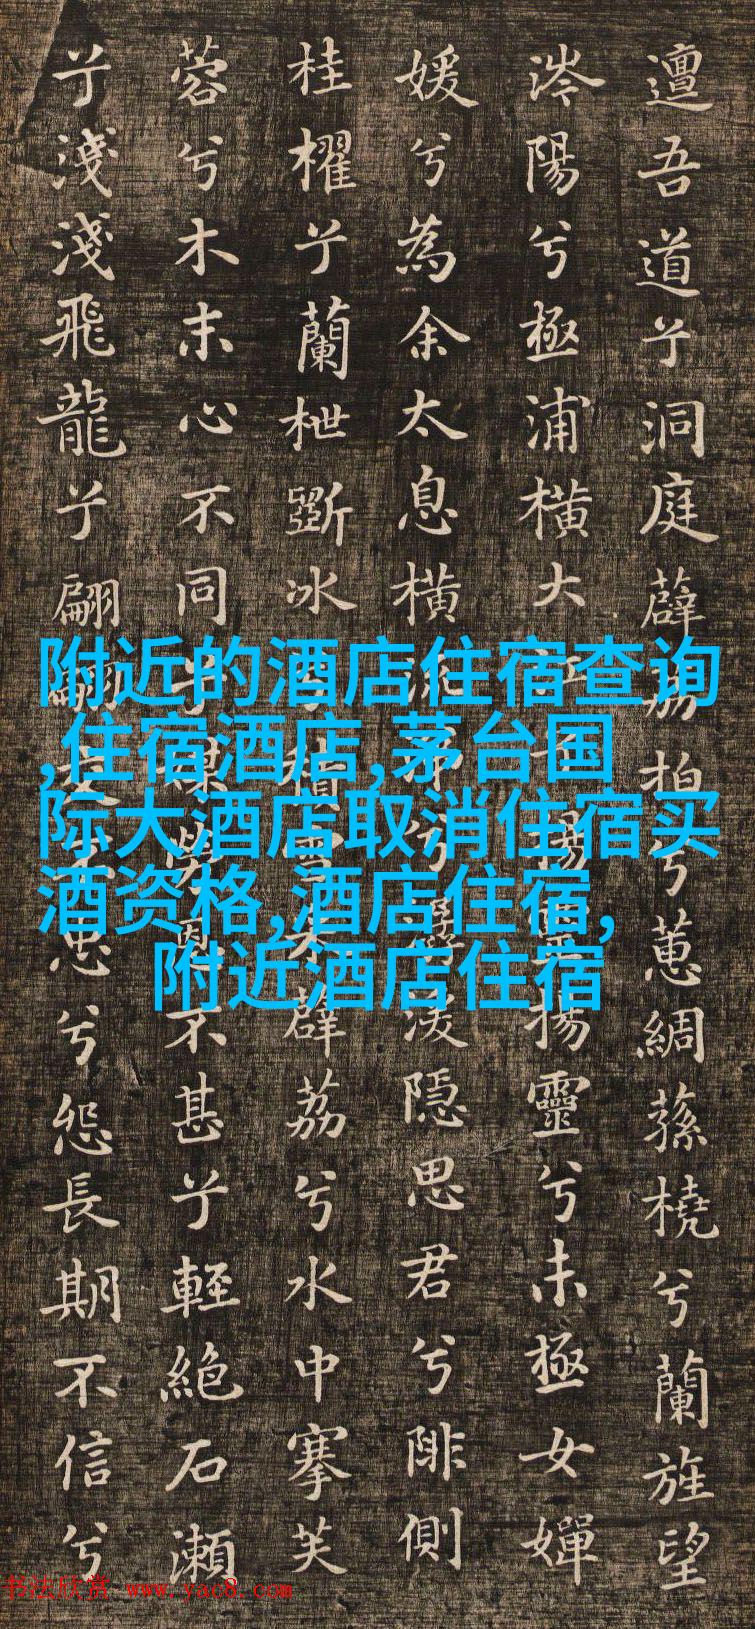 邅吾道兮洞庭薜荔拍兮蕙綢蓀橈兮蘭旌望
涔陽兮極浦橫大江兮揚靈揚靈兮未極女嬋
媛兮為余太息橫流涕兮潺湲隱思君兮陫側
桂櫂兮蘭枻斲冰兮積雪采薜荔兮水中搴芙
蓉兮木末心不同兮媒勞恩不甚兮輕絕石瀨
兮淺淺飛龍兮翩翩交不忠兮怨長期不信兮
附近的酒店住宿查询
,住宿酒店,茅台国
际大酒店取消住宿买
酒资格,酒店住宿,
附近酒店住宿
书法欣赏 www.yac8.com